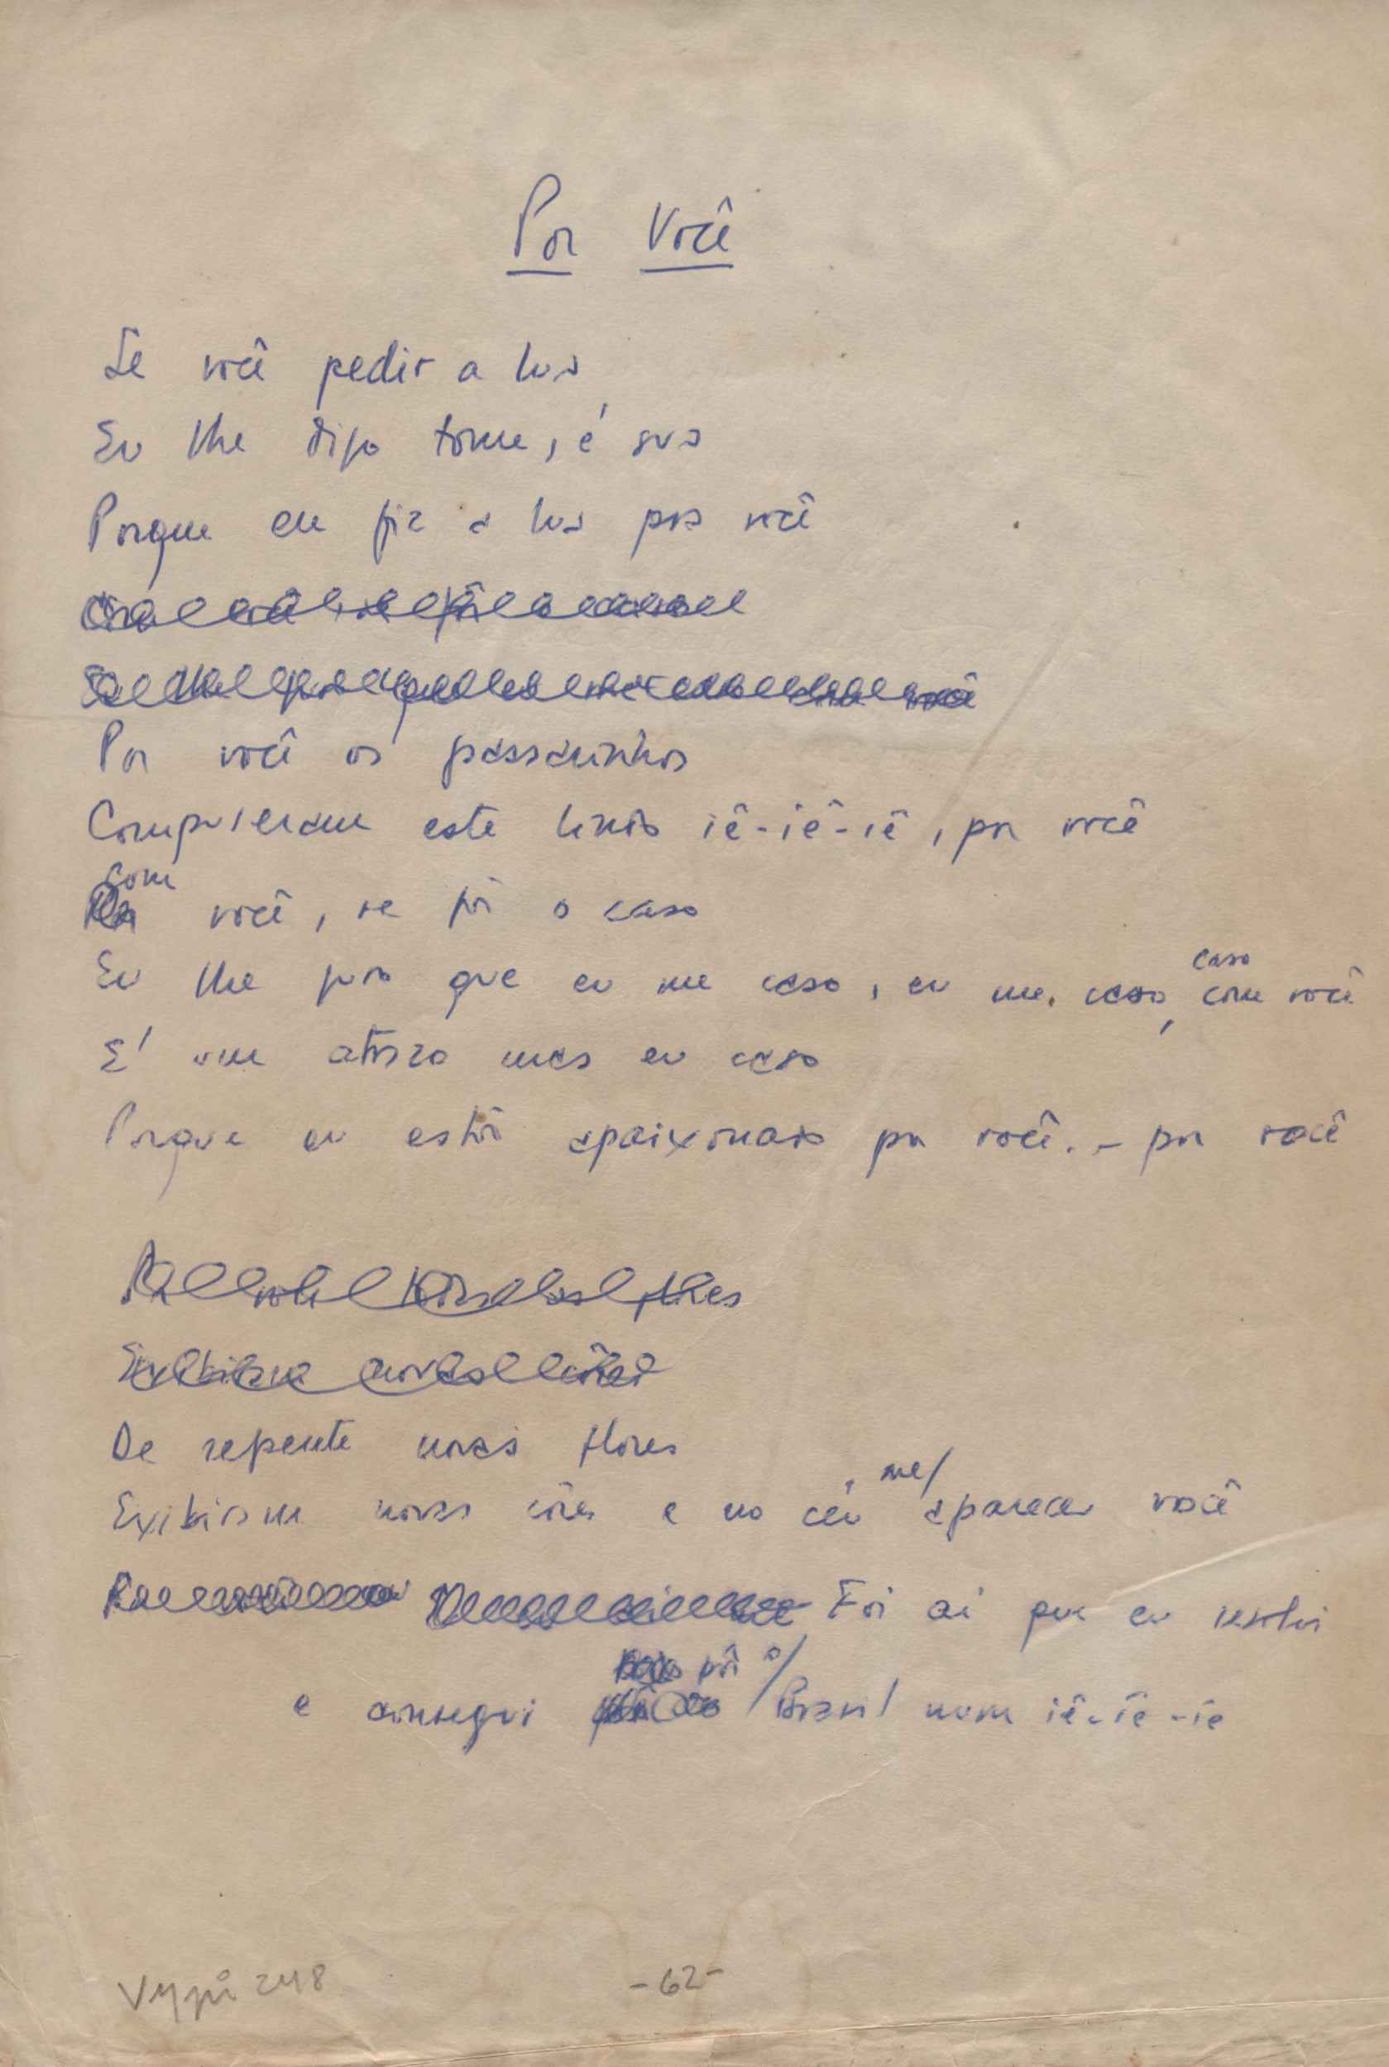 Por Você
Se você pedir a lua
Eu lhe digo tome, é sua
Porque eu fiz a lua pra você
Por você os passarinhos
Compuseram este lindo iê-iê-iê, por você
com
você, se fôr o caso
caso
Eu lhe juro que eu me caso, eu me caso, com você
É um atraso mas eu caso
Porque eu estôu apaixonado por você. - por você
flores
De repente novas flores
me/
Exibiram novas côres e no céu apareceu você
Foi aí que eu resolvi
pôr o/
e consegui Brasil num iê-iê-iê
248
-62-